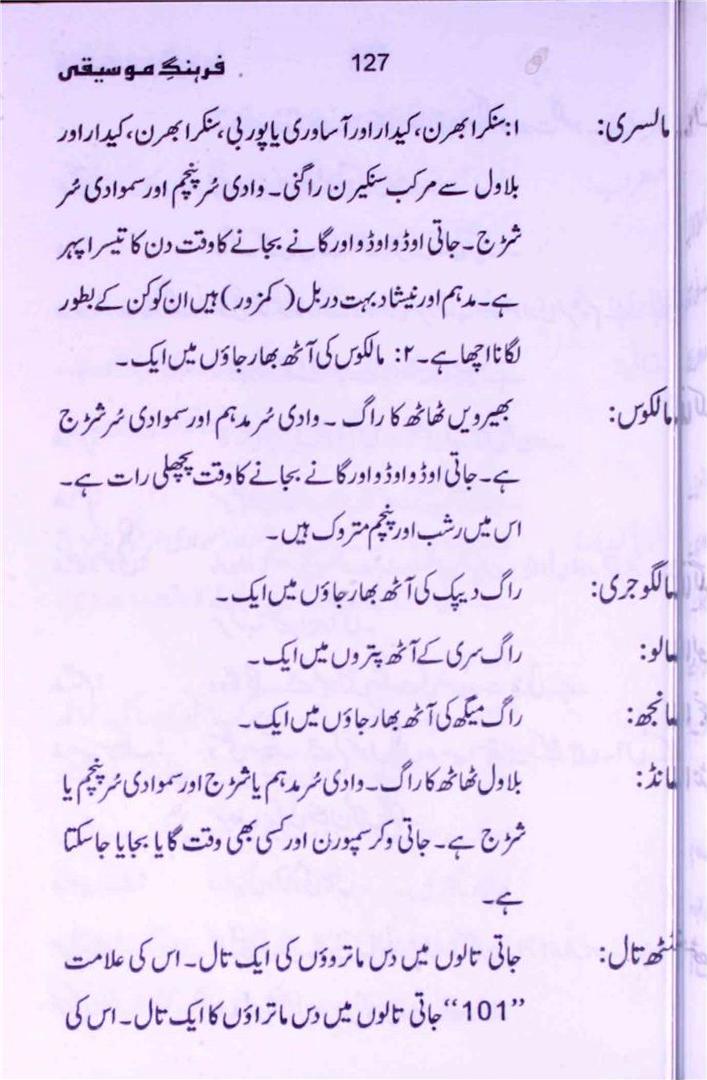 127 فرہنگِ موسیقی
مالسری: ۱: سنکرا بھرن، کیدار اور آساوری یا پوربی، سنکرا بھرن، کیدار اور
بلاول سے مرکب سنکیرن راگنی۔ وادی سُر پنچم اور سموادی سُر
شڑج۔ جاتی اوڈو اوڈو اور گانے بجانے کا وقت دن کا تیسرا پہر
ہے۔ مدہم اور نیشاد بہت دربل (کمزور) ہیں ان کو کن کے بطور
لگانا اچھا ہے۔ ۲: مالکوس کی آٹھ بھارجاؤں میں ایک۔
مالکوس: بھیرویں ٹھاٹھ کا راگ ۔ وادی سُر مدہم اور سموادی سُر شڑج
ہے۔ جاتی اوڈو اوڈو اور گانے بجانے کا وقت پچھلی رات ہے۔
اس میں رشب اور پنچم متروک ہیں۔
مالگوجری: راگ دیپک کی آٹھ بھارجاؤں میں ایک۔
مالو: راگ سری کے آٹھ پتروں میں ایک۔
مانجھ: راگ میگھ کی آٹھ بھارجاؤں میں ایک۔
مانڈ: بلاول ٹھاٹھ کا راگ۔ وادی سُر مدہم یا شڑج اور سموادی سُر پنچم یا
شڑج ہے۔ جاتی وکر سمپورن اور کسی بھی وقت گایا بجایا جاسکتا
ہے۔
تال: جاتی تالوں میں دس ماتروؤں کی ایک تال۔ اس کی علامت
”101“ جاتی تالوں میں دس ماتراؤں کا ایک تال۔ اس کی